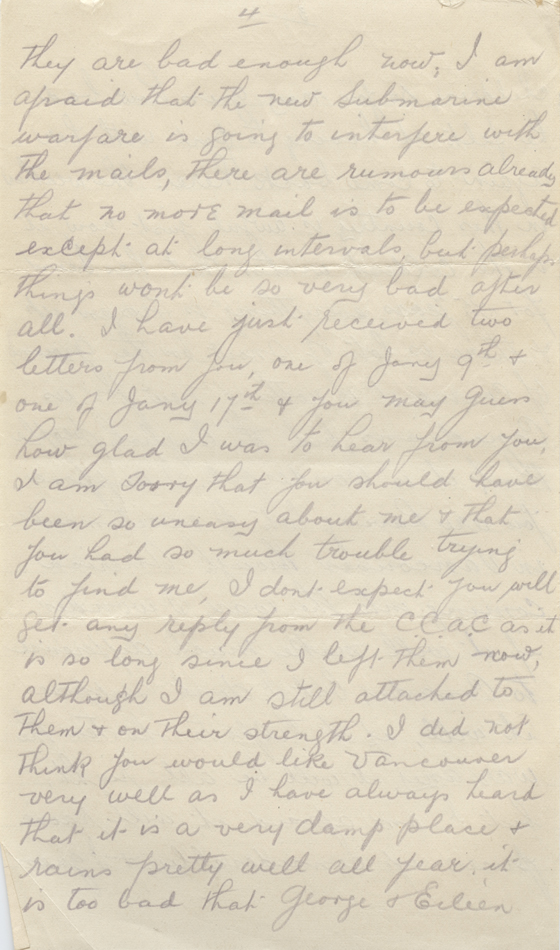 4
they are bad enough now; I am
afraid that the new Submarine
warfare is going to interfere with
the mails, there are rumours already
that no more mail is to be expected
except at long intervals, but perhaps
things wont be so very bad after
all. I have just received two
letters from you, one of Jany 9th &
one of Jany 17th & you may guess
how glad I was to hear from you,
I am sorry that you should have
been so uneasy about me & that
you had so much trouble trying
to find me, I dont expect you will
get any reply from the C.C.A.C as it
is so long since I left them now,
although I am still attached to
them & on their strength. I did not
think you would like Vancouver
very well as I have always heard
that it is a very damp place &
rains pretty well all year, it
is too bad that George & Eileen